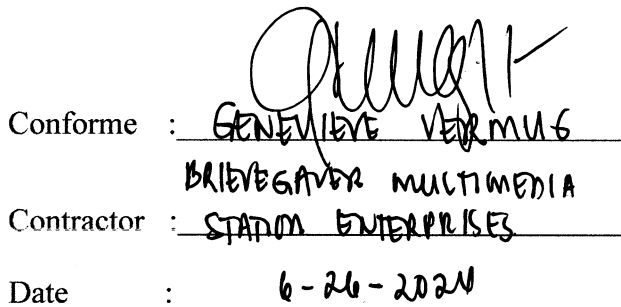 Conforme : GENEVIEVE VERMUG
BRIEVEGAVER MULTIMEDIA
Contractor : STATION ENTERPRISES
Date : 6-26-2024